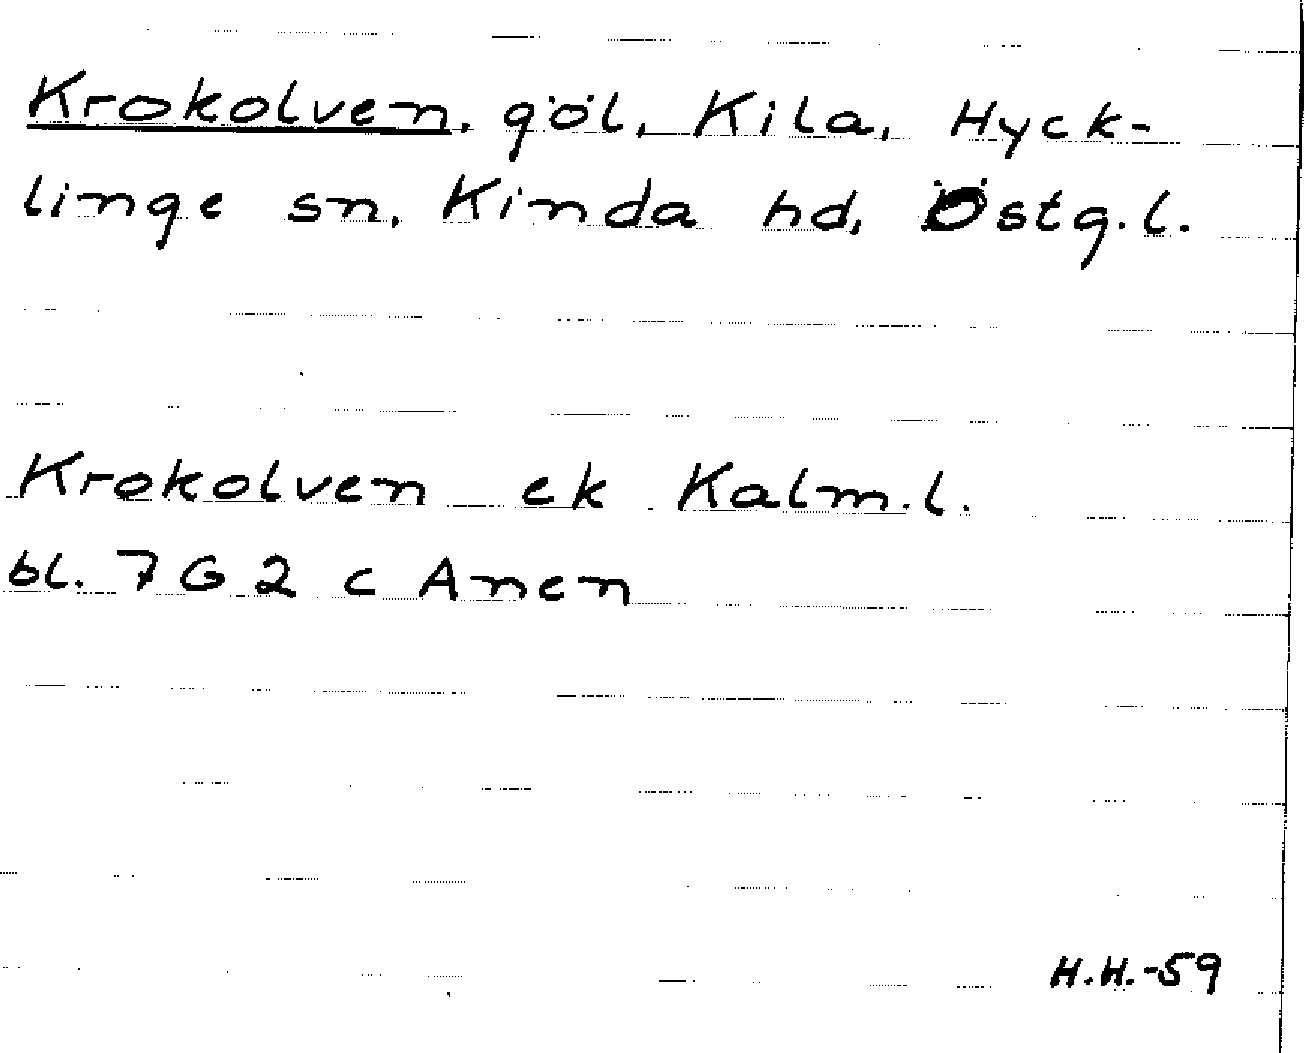 Krokolven, göl, Kila, Hyck-
linge sn, Kinda hd, Östg.l.
Krokolven ek Kalm.l.
bl. 7 G 2 c Anen
H.H.-59